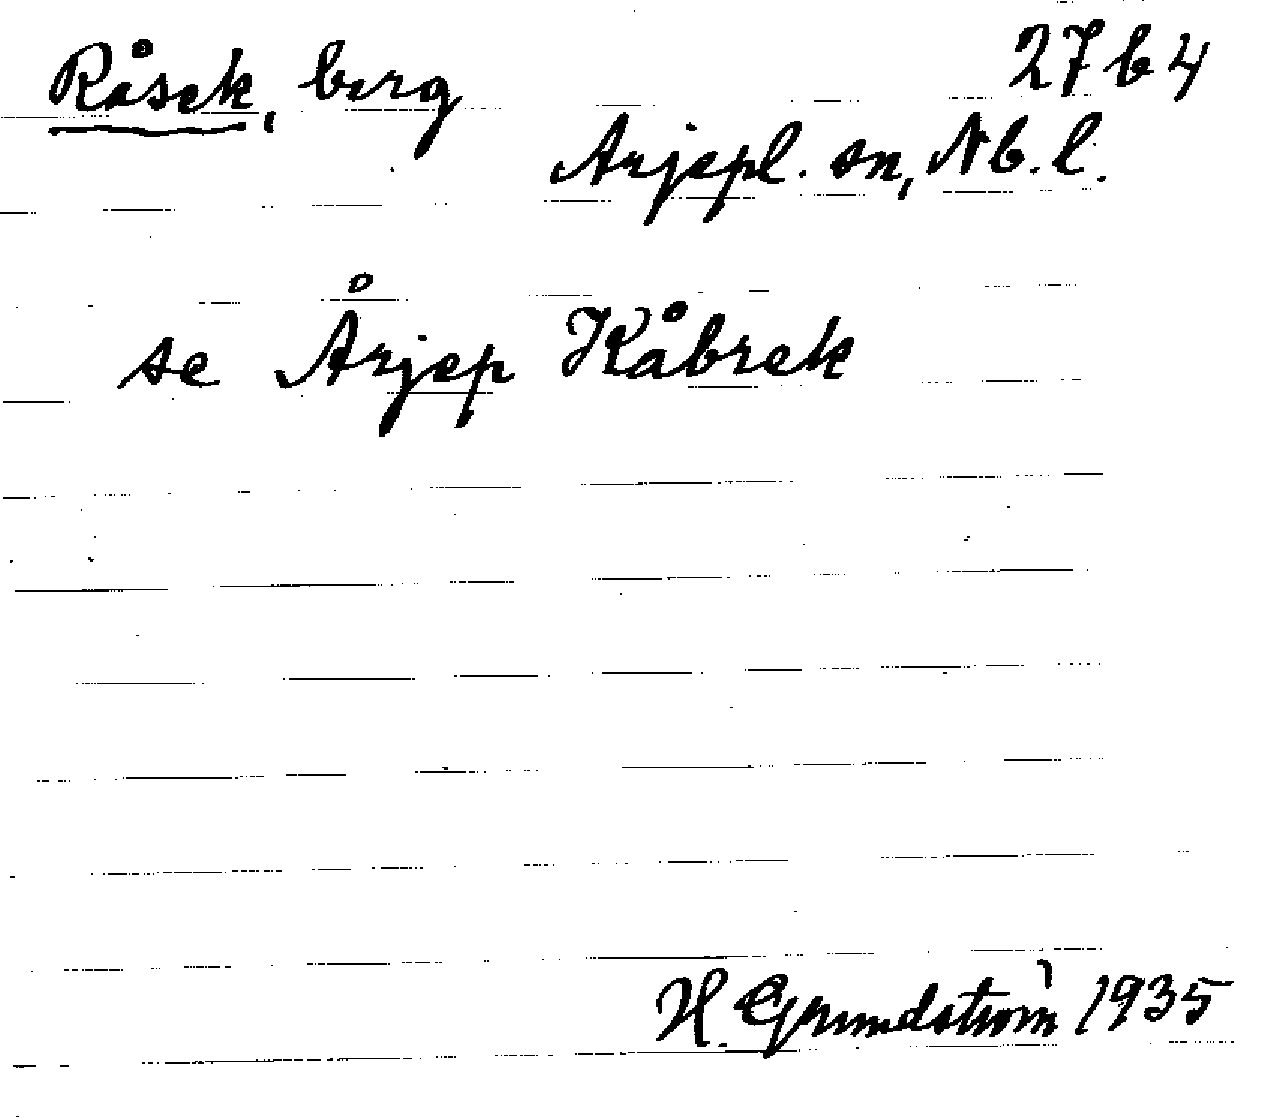 Råsek, berg 27 b 4
Arjepl. sn, Nb. l.
se Årjep Kåbrek
H. Grundström 1935